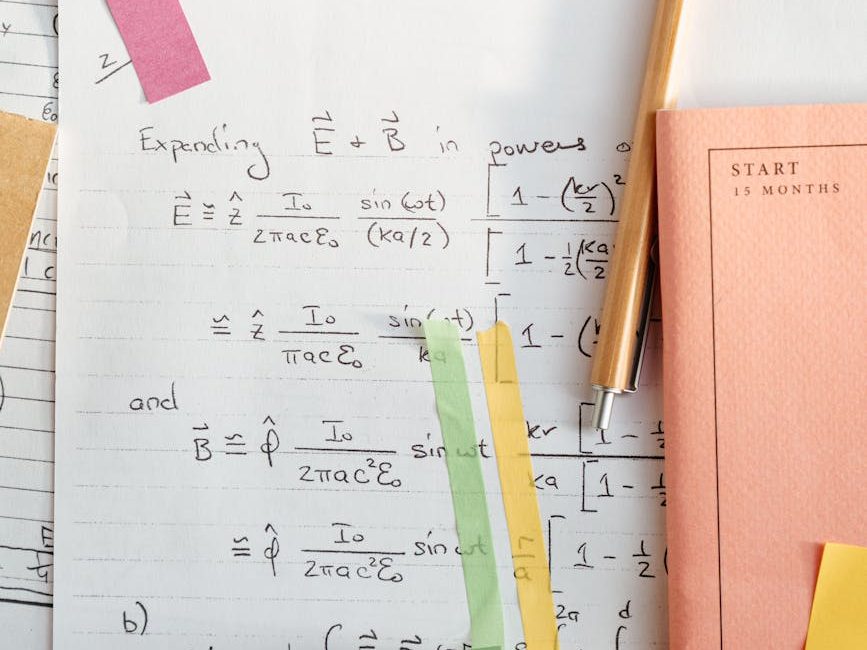 z
Expanding E⃗ + B⃗ in powers
E⃗ ≅ ẑ I₀ / 2πacε₀ sin(ωt) / (ka/2) [1 - (kr/2)² / [1 - ½(ka/2
≅ ẑ I₀ / πacε₀ sin(ωt) / ka [1 - (
and
B⃗ ≅ φ̂ I₀ / 2πac²ε₀ sin ωt kr [1 - ½ / ka [1 - ½
≅ φ̂ I₀ / 2πac²ε₀ sin ωt r/a [1 - ½(
b)
2a d
START
15 MONTHS